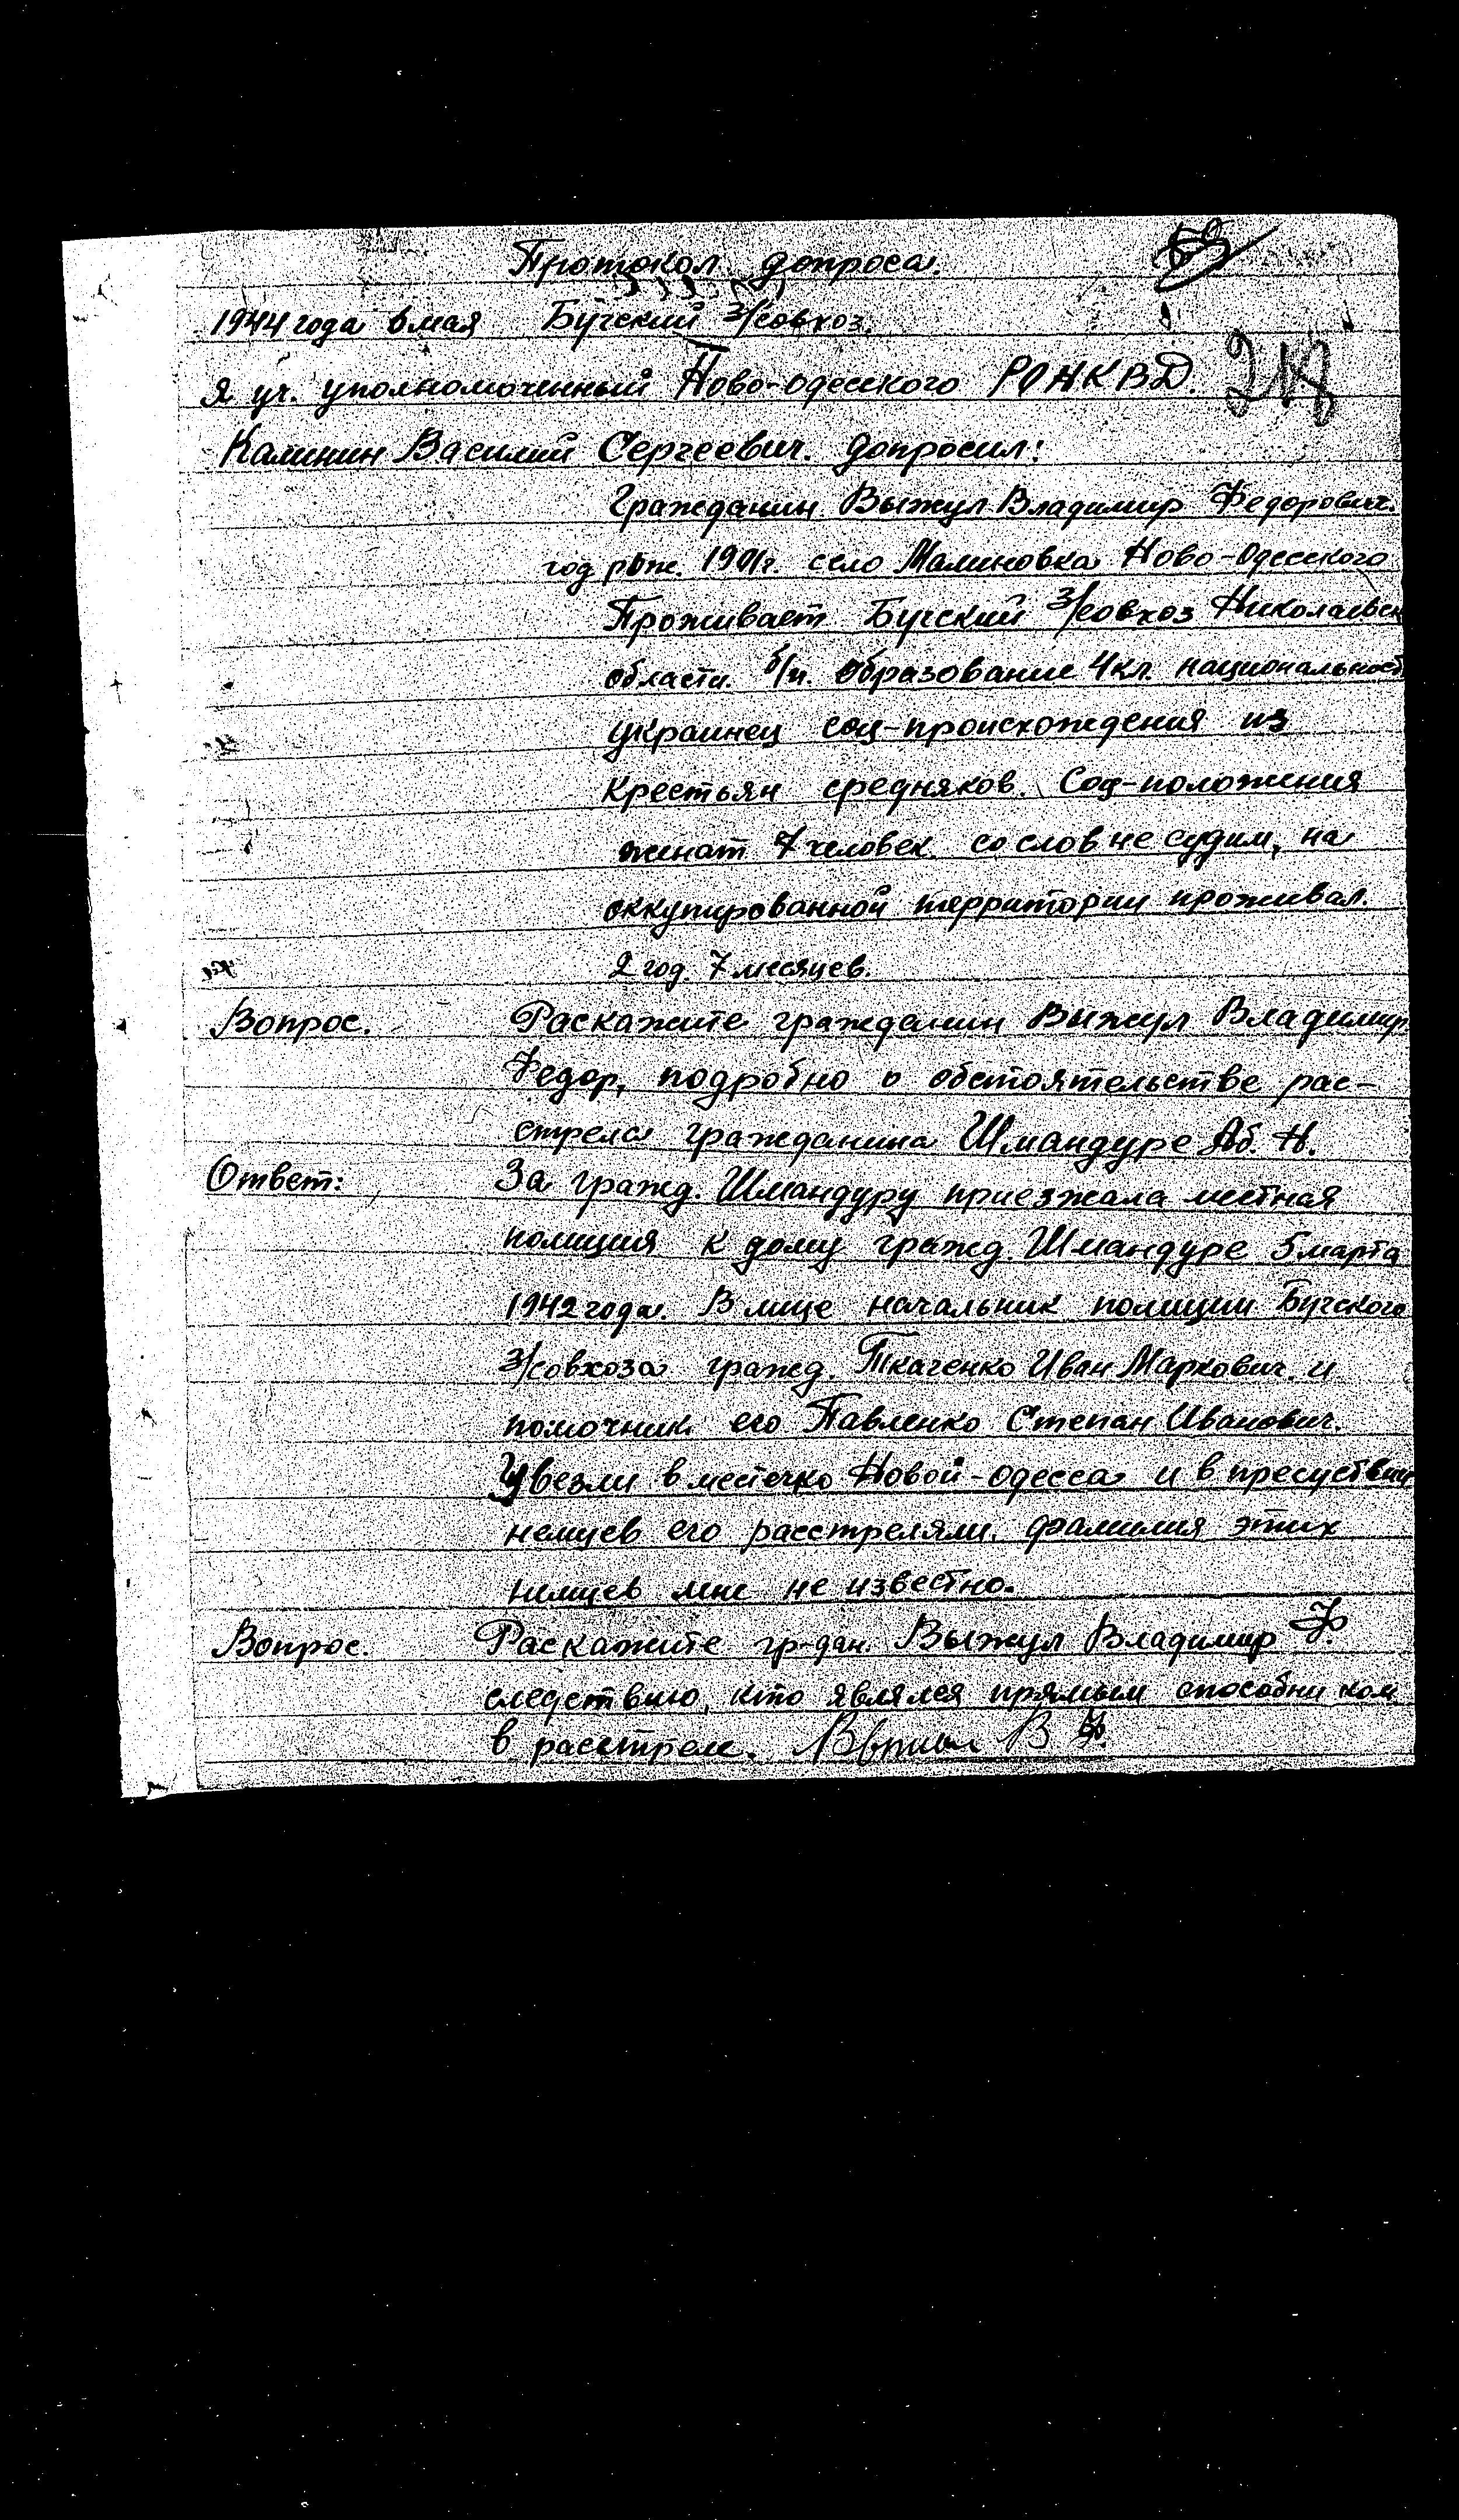 Протокол допроса.
1944 года 6 мая Бугский з/совхоз.
Я уч. уполномоченный Ново-Одесского РОНКВД. 218
Калинин Василий Сергеевич. допросил:
Гражданин Выжул Владимир Федорович.
год рож. 1901г. село Малиновка Ново-Одесского
Проживает Бугский з/совхоз Николаевск
области. б/п. образование 4кл. национальност
украинец соц-происхождения из
Крестьян средняков. Соц-положения
женат 7 человек. со слов не судим, на
оккупированной территории проживал.
2 год. 7 месяцев.
Вопрос. Раскажите гражданин Выжул Владимир
Федор, подробно о обстоятельстве рас-
стрела гражданина Шмандуре Аб. Н.
Ответ: За гражд. Шмандуру приезжала местная
полиция к дому гражд. Шмандуре 5 марта
1942 года. В лице начальник полиции Бугского
з/совхоза гражд. Ткаченко Иван Маркович. и
помочник его Павленко Степан Иванович.
Увезли в местечко Новой-Одесса и в пресуствии
немцев его расстреляли. фамилия этих
немцев мне не известно.
Вопрос. Раскажите гр-дан. Выжул Владимир Ф.
следствию, кто являлся прямым способником
в расстреле.